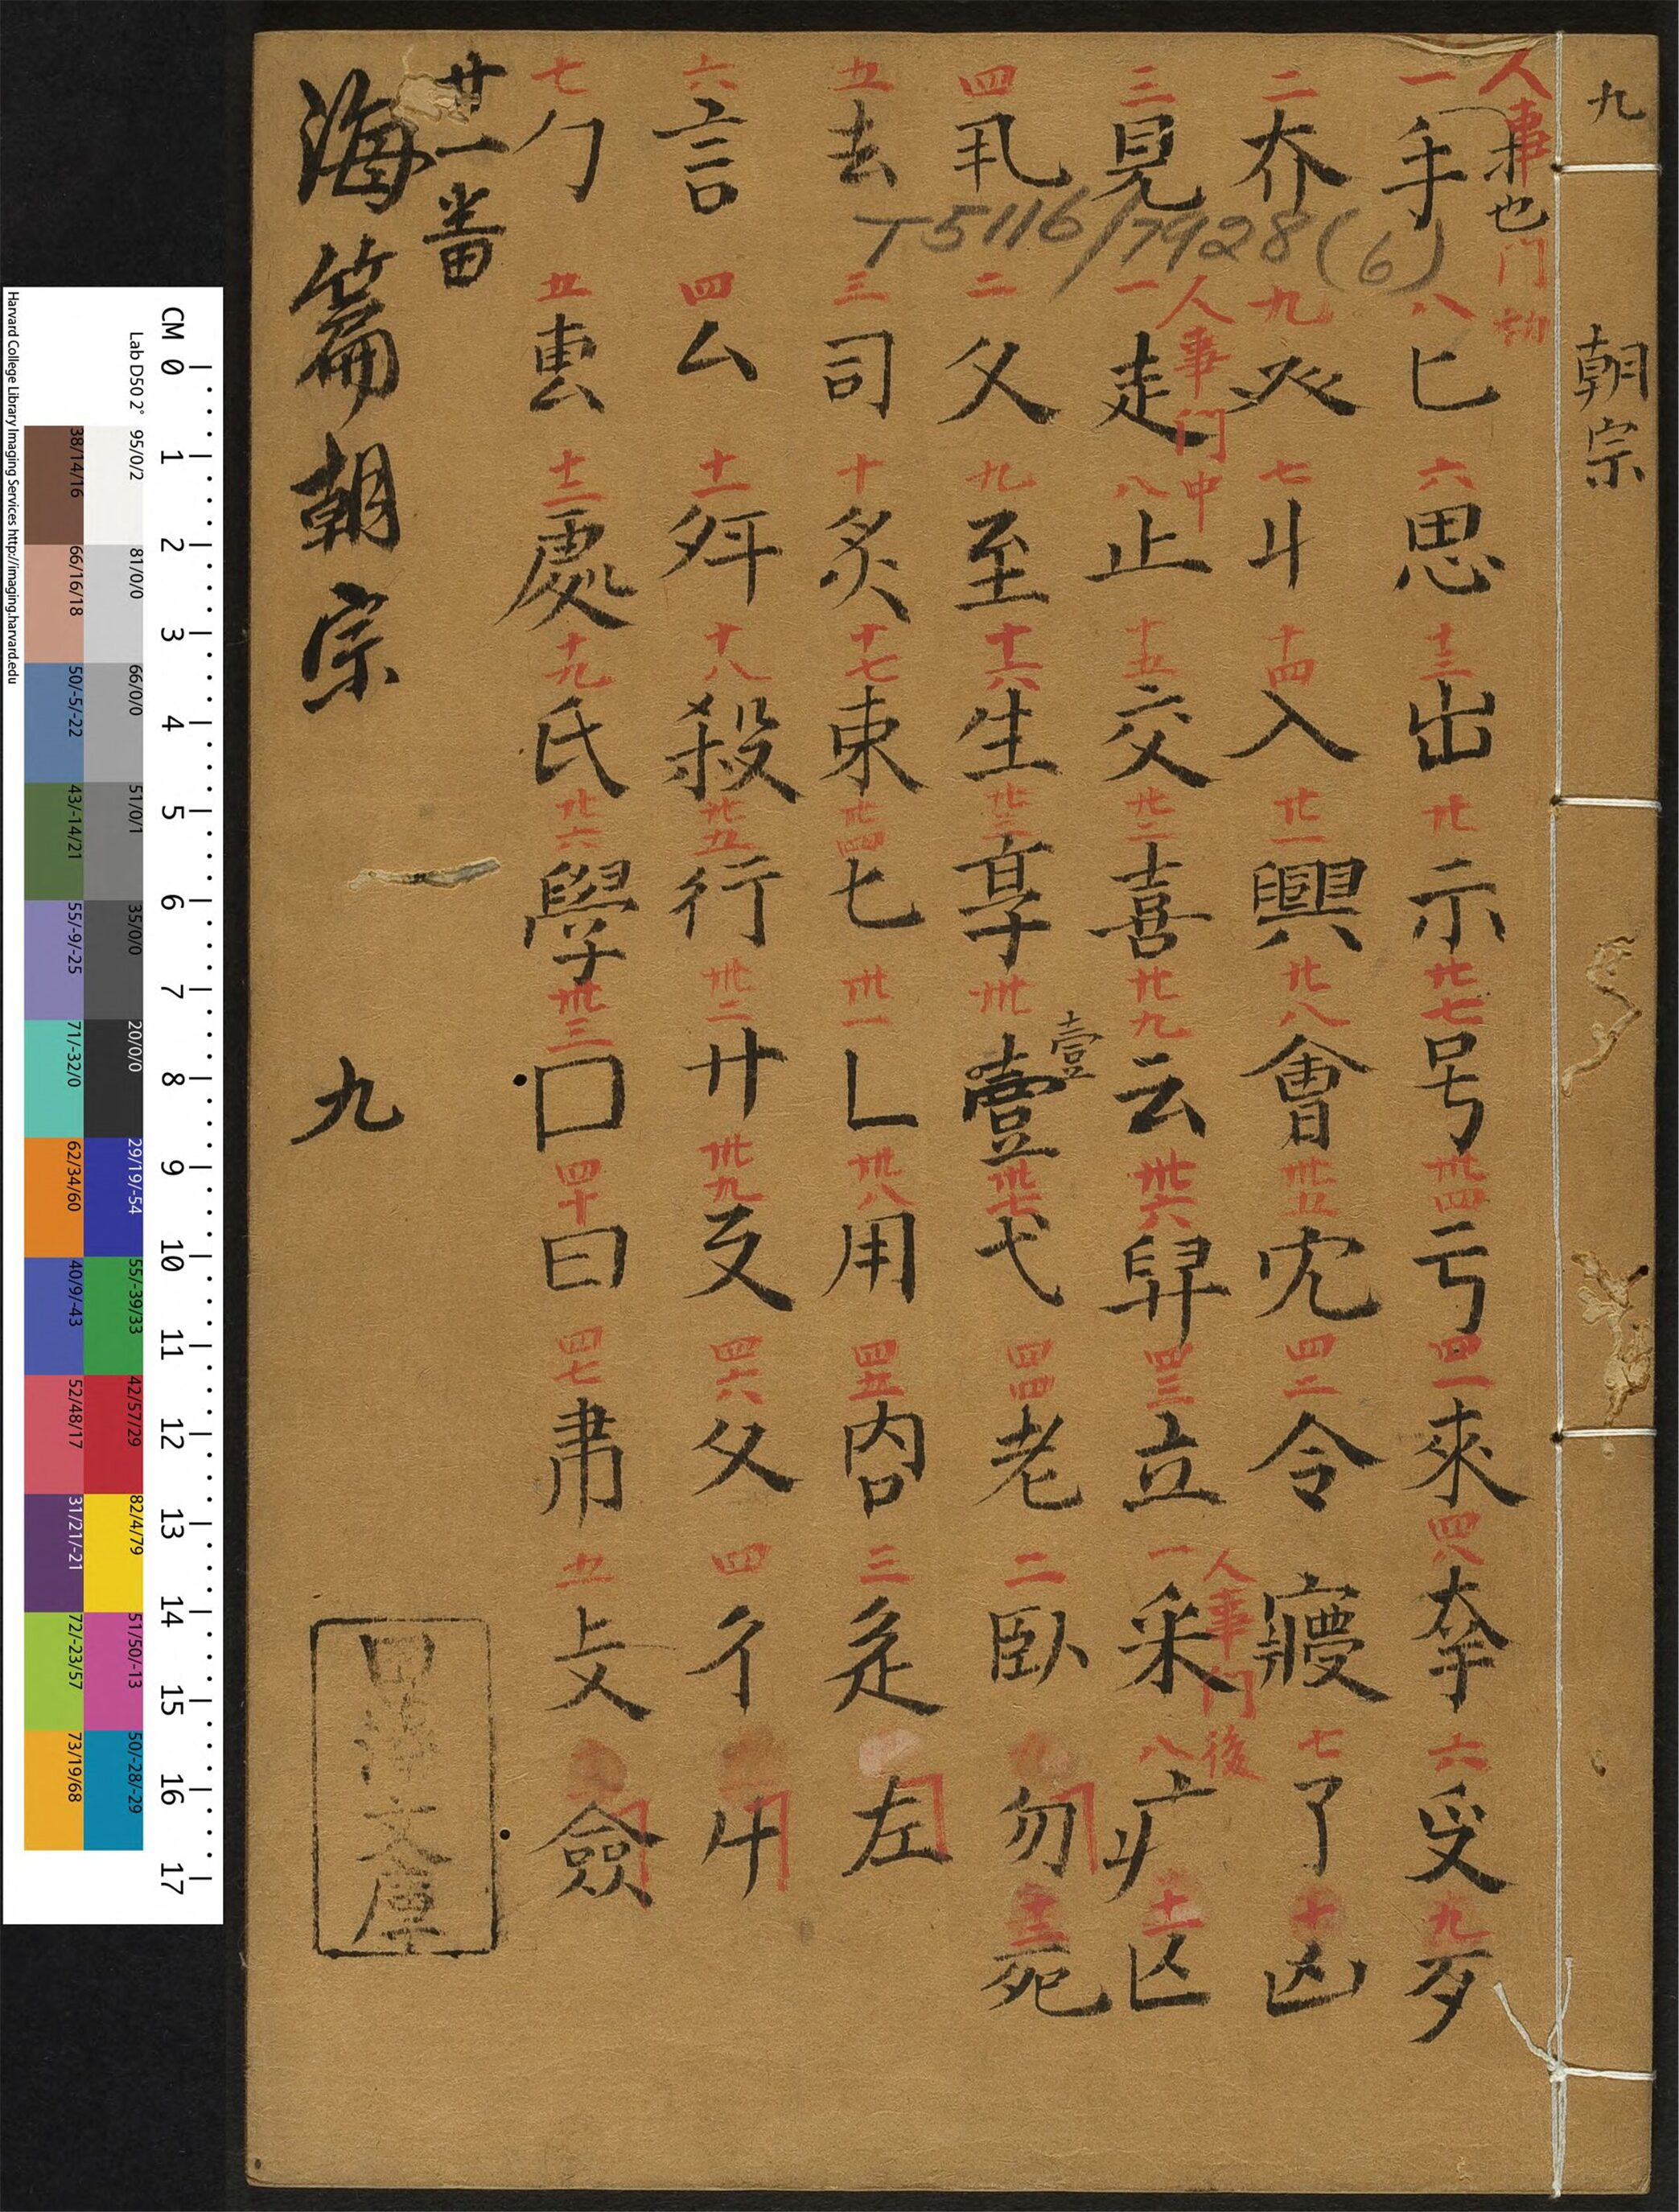 九 朝宗
人事門
也
一手 八匕 六思 十三出 廿示 廿七号 卅四亏 四一來 四八夲 六受 九歹
二夰 九癶 七斗 十四入 廿一興 廿八會 卅五冘 四二令 㝱 七了 十凶
人事門中
人事門後
三見 一走 八止 十五交 廿二喜 廿九云 卅六舁 四三立 一采 八疒 十一亾
壹
四丮 二父 九至 十六生 廿三享 卅壹 卅七弋 四四老 二臥 九勿 十二死
五去 三司 十炙 十七東 廿四七 卅一乚 卅八用 四五㕯 三辵 左
六言 四厶 十一 十八殺 廿五行 卅二廾 卅九 四六夊 四彳
七勹 五叀 十二處 十九氏 廿六學 卅三口 四十曰 四七 五攴 僉
廿一番
海篇朝宗 九
T5116/7928(6)
四 文庫
CM 0 1 2 3 4 5 6 7 8 9 10 11 12 13 14 15 16 17
Lab D50 2° 95/0/2 81/0/0 66/0/0 51/0/1 35/0/0 20/0/0 29/19/-54 55/-39/33 42/57/29 82/4/79 51/50/-13 50/-28/-29
38/14/16 66/16/18 50/-5/-22 43/-14/21 55/-9/-25 71/-32/0 62/34/60 40/9/-43 52/48/17 31/21/-21 72/-23/57 73/19/68
Harvard College Library Imaging Services http://imaging.harvard.edu